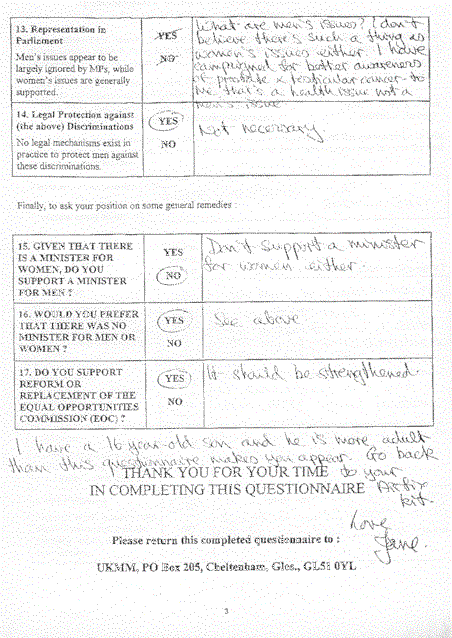 13. Representation in
Parliament
Men's issues appear to be
largely ignored by MPs, while
women's issues are generally
supported.
YES
NO
What are men's issues? I don't
believe there's such a thing as
women's issues either. I have
campaigned for better awareness
of prostate & testicular cancer - to
me that's a health issue not a
men's issue
14. Legal Protection against
(the above) Discriminations
No legal mechanisms exist in
practice to protect men against
these discriminations.
YES
NO
Not necessary
Finally, to ask your position on some general remedies :
15. GIVEN THAT THERE
IS A MINISTER FOR
WOMEN, DO YOU
SUPPORT A MINISTER
FOR MEN ?
YES
NO
Don't support a minister
for women either.
16. WOULD YOU PREFER
THAT THERE WAS NO
MINISTER FOR MEN OR
WOMEN ?
YES
NO
See above
17. DO YOU SUPPORT
REFORM OR
REPLACEMENT OF THE
EQUAL OPPORTUNITIES
COMMISSION (EOC) ?
YES
NO
It should be strengthened.
I have a 16 year-old son and he is more adult
than this questionnaire makes you appear. Go back
to your
kit.
THANK YOU FOR YOUR TIME
IN COMPLETING THIS QUESTIONNAIRE
Love
Jane.
Please return this completed questionnaire to :
UKMM, PO Box 205, Cheltenham, Glos., GL51 0YL
3